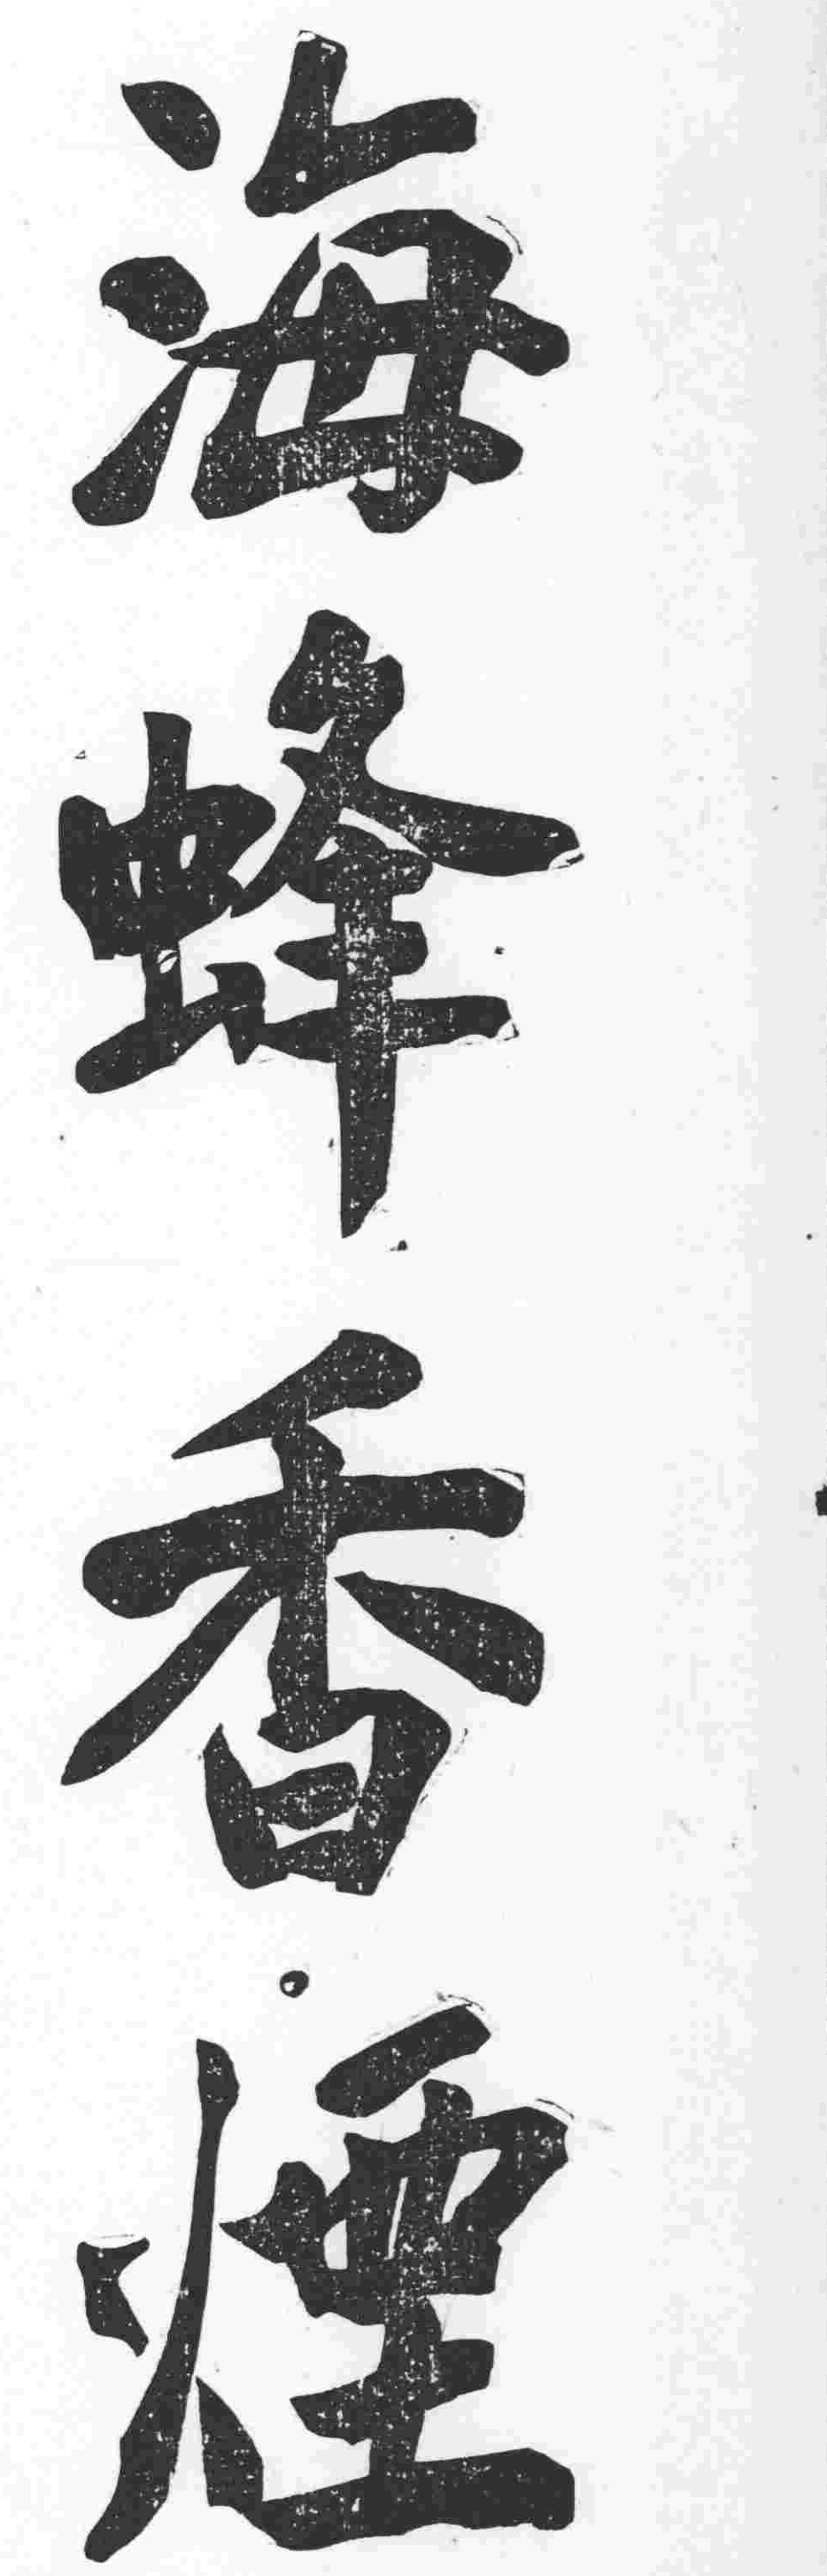 海蜂香煙